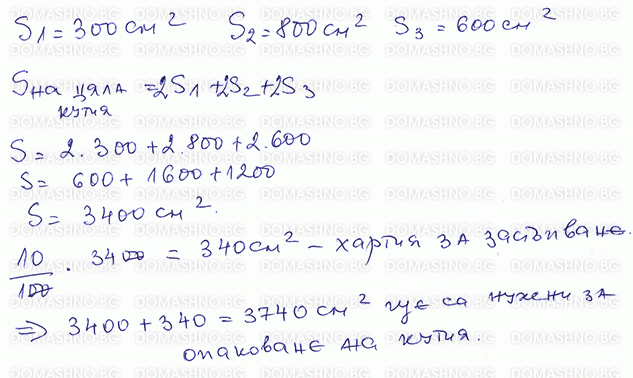 S1 = 300 cm² S2 = 800 cm² S3 = 600 cm²
S на цяла кутия = 2S1 + 2S2 + 2S3
S = 2.300 + 2.800 + 2.600
S = 600 + 1600 + 1200
S = 3400 cm².
10/100 . 3400 = 340 cm² – хартия за застъпване.
⇒ 3400 + 340 = 3740 cm² ще са нужени за
опаковане на кутия.
DOMASHNO.BG